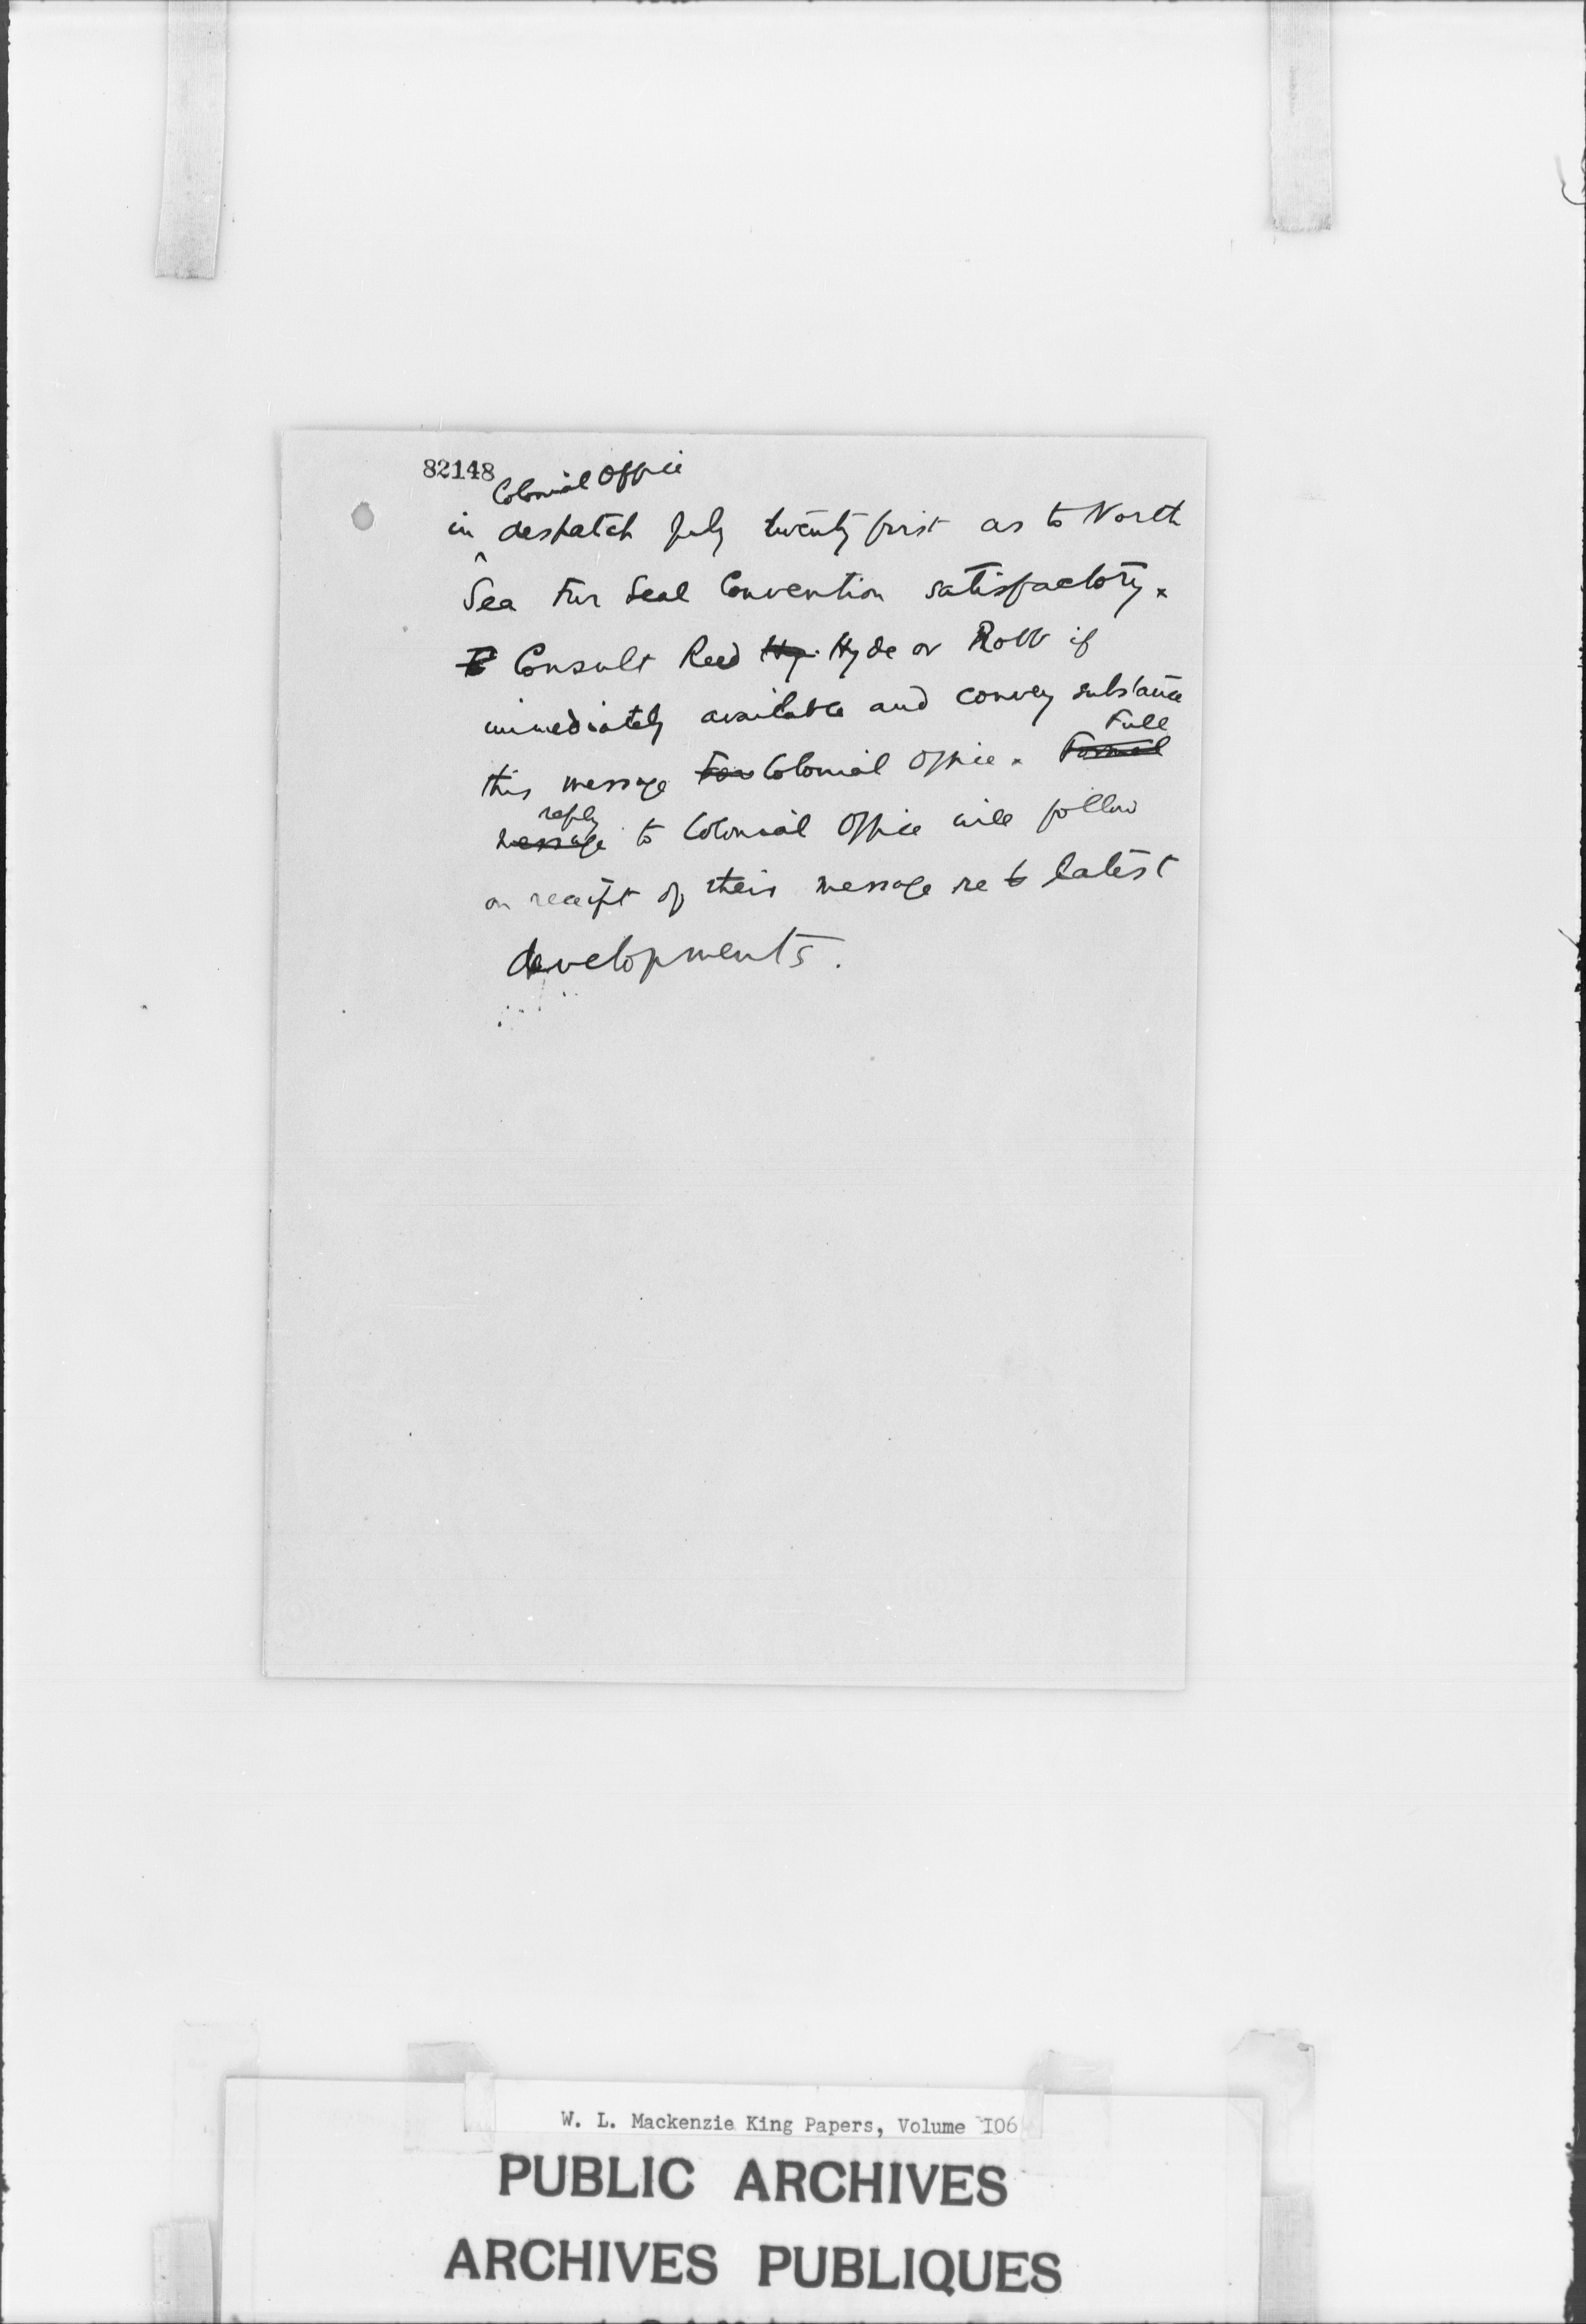 82148
Colonial Office
in despatch July twenty first as to North
Sea Fur Seal Convention satisfactory x
Consult Reed Hy. Hyde or Robb if
immediately available and convey substance
Full
this message For Colonial Office x Formal
reply
message to Colonial Office will follow
on receipt of their message re to latest
developments.
W. L. Mackenzie King Papers, Volume 106
PUBLIC ARCHIVES
ARCHIVES PUBLIQUES